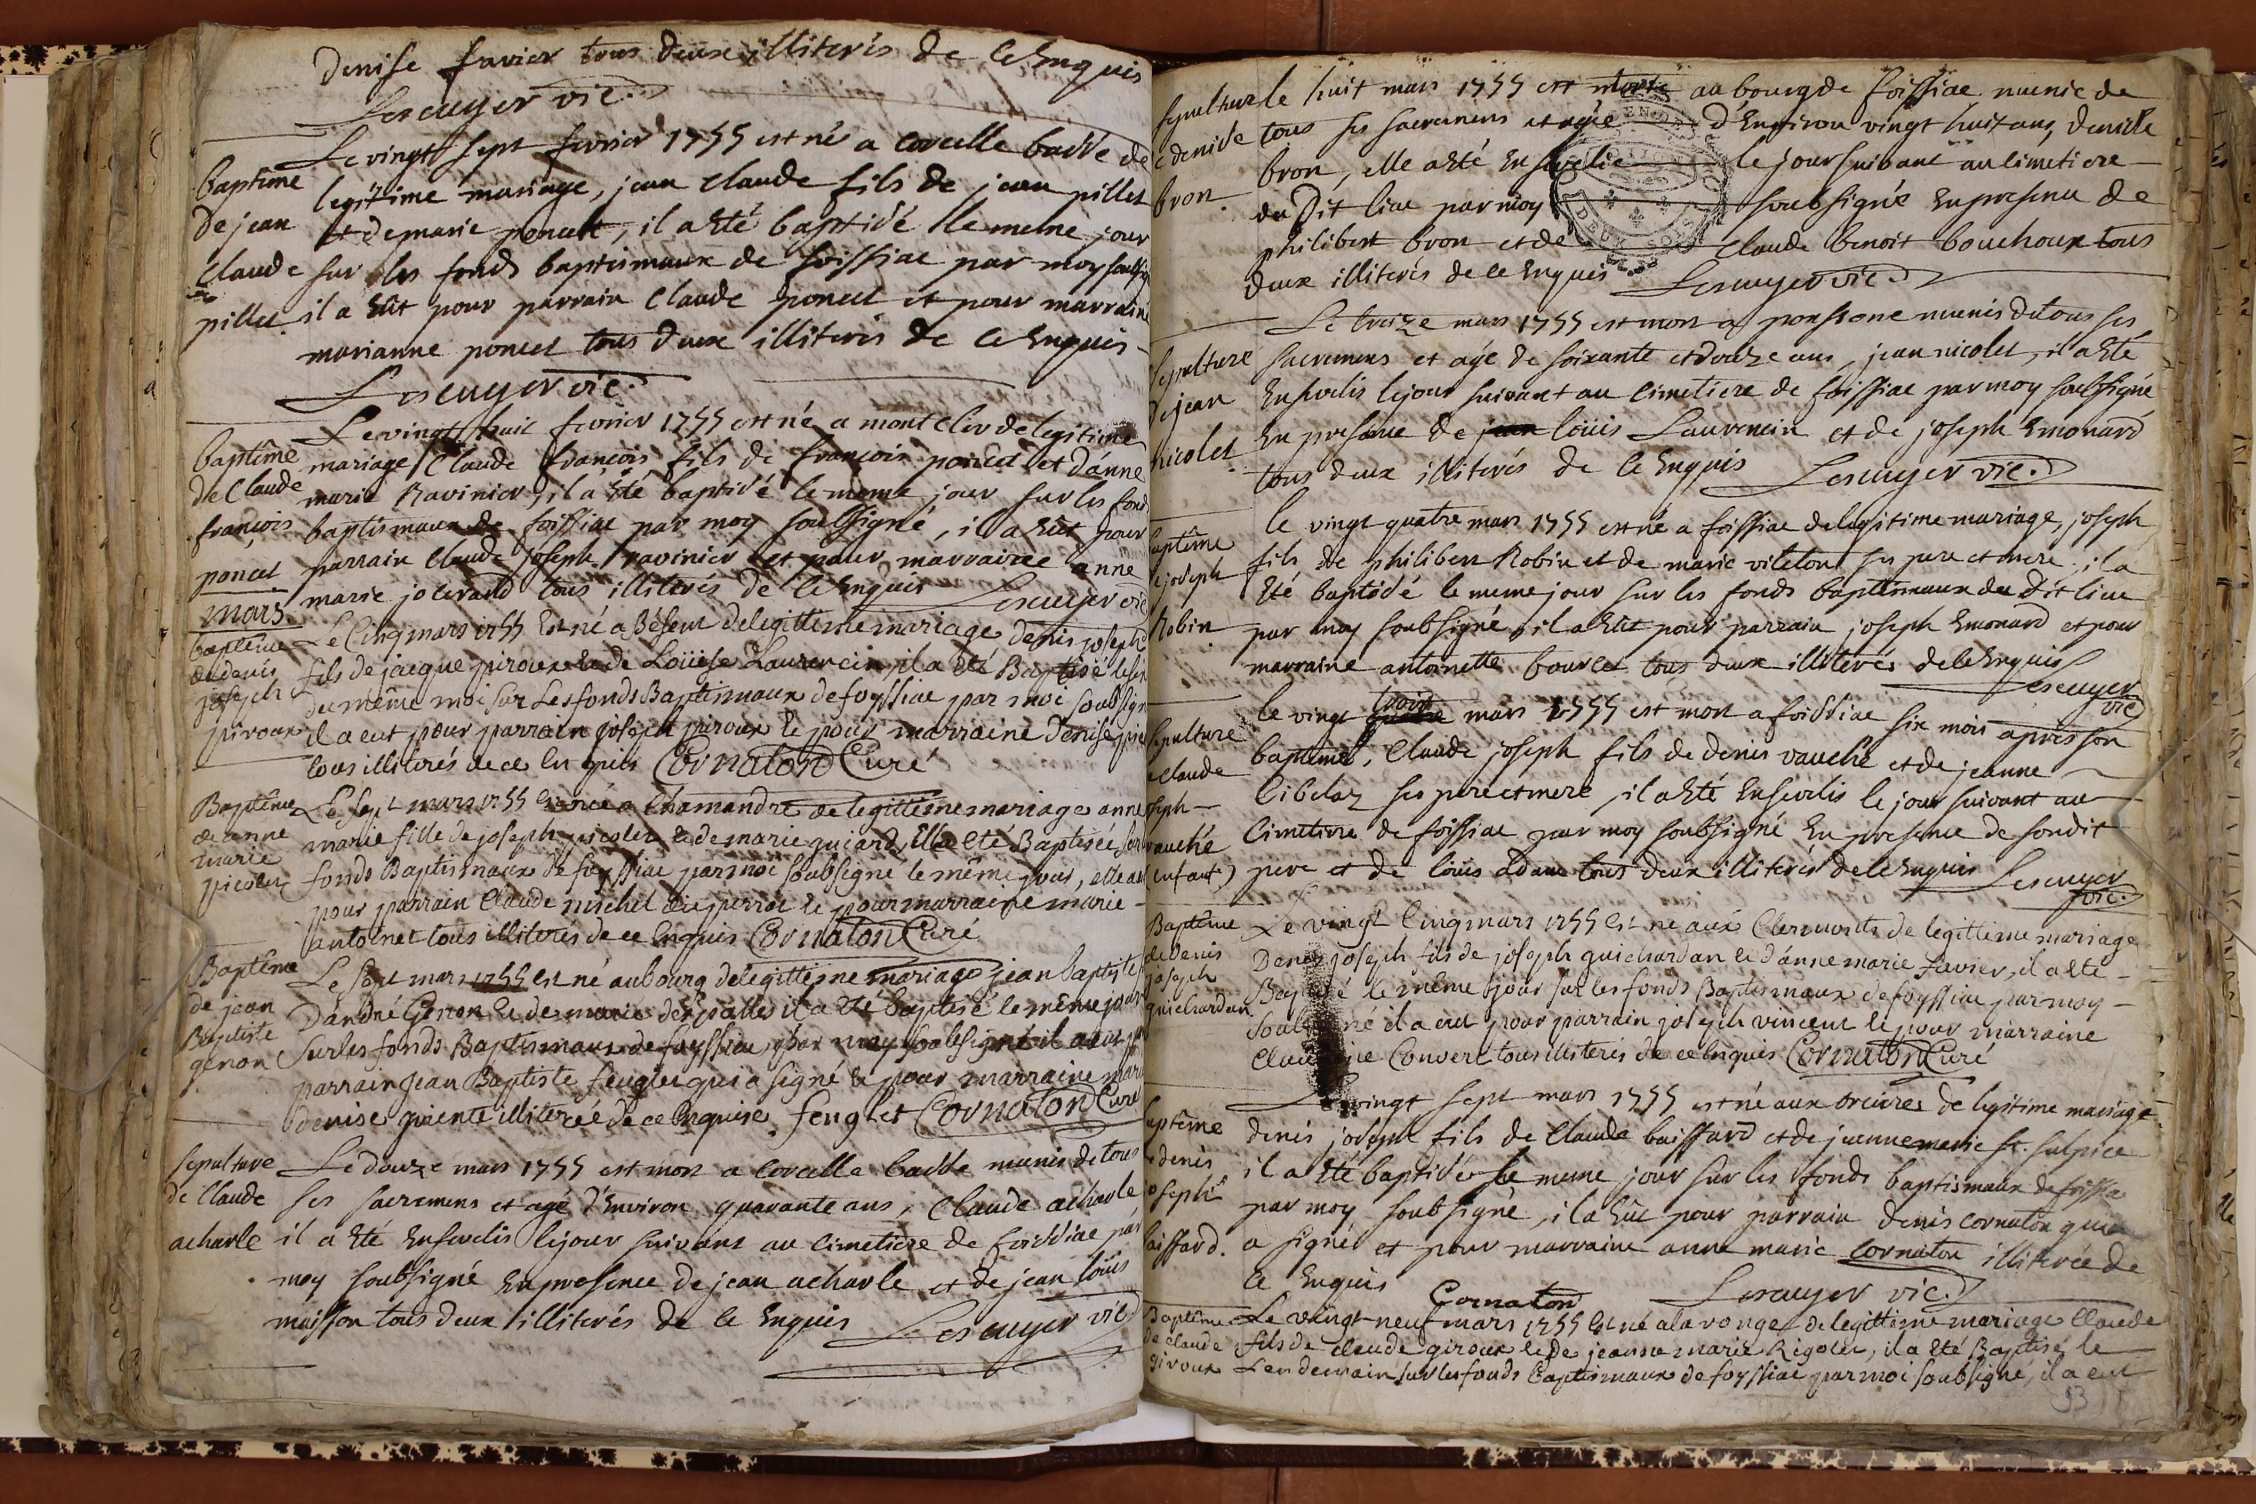 Denise favier tous deux illiterés de ce Enquis
Lescuyer vic.
baptême
de jean
claude
pillet.
Le vingt sept fevrier 1755 est né a corcelle badde de
legitime mariage, jean claude fils de jean pillet
et de marie poncet, il a Eté baptisé le meme jour
sur les fonds baptismaux de foissiac par moy soussig
il a Eut pour parrain claude poncet et pour marraine
marianne poncet tous deux illiterés de ce Enquis
Lescuyer vic.
baptême
de claude
françois
poncet
Le vingt huit fevrier 1755 est né a montcler de legitime
mariage claude françois fils de françois poncet et d'anne
marie Ravinier, il a Eté baptisé le meme jour sur les fonds
baptismaux de foissiac par moy soussigné, il a Eut pour
parrain claude joseph ravinier et pour marraine anne
marie jolerand tous illiterés de ce Enquis Lescuyer vic
mars
baptême
de denis
joseph
piroux
Le Cinq mars 1755 Est né a Béseut de legittime mariage denis joseph
fils de jacque piroux & de Loüise Laurencin, il a été Baptisé le
du même moi sur Les fonds Baptismaux de foyssiac par moi soubsign
il a eut pour parrain joseph piroux & pour marraine Denise
tous illiterés de ce Enquis Cornaton Curé
Baptême
de anne
marie
nicolet
Le sept mars 1755 Est née a Chamandre de legittime mariage anne
marie fille de joseph nicolet & de marie guiard, Elle a été Baptisée sur
fonds Baptismaux de foyssiac par moi soubsigné le même jour, elle a eu
pour parrain Claude michel & pour marraine marie
antoinet tous illiterés de ce Enquis Cornaton Curé
Baptême
de jean
Baptiste
genon
Le sept mars 1755 Est né au bourg de legittime mariage jean baptiste
D'andré Genon & de marie il a été Baptisé le même jour
sur les fonds Baptismaux de foyssiac, par moy soubsigné il a eut
parrain Jean Baptiste feuglet qui a signé & pour marraine
denise illiterée de ce Enquise. feuglet Cornaton Curé
sepulture
de Claude
acharle
Le douze mars 1755 est mort a corcelle badde munis de tous
ses sacremens et agé d'Environ quarante ans, Claude acharle
il a Eté Enseveli le jour suivant au cimetiere de foissiac par
moy soubsigné En presence de jean acharle et de jean loüis
moisson tous deux illiterés de ce Enquis Lescuyer vic
sepulture
denise
bron.
le huit mars 1755 est morte au bourg de foissiac munie de
tous ses sacremens et agée d'Environ vingt huit ans, denise
bron, elle a Eté Ensevelie le jour suivant au cimetiere
du Dit lieu par moy soubsigné En presence de
philibert bron et de claude benoit bouchoux tous
deux illiterés de ce Enquis Lescuyer vic
sepulture
de jean
nicolet
Le treize mars 1755 est mort a munis de tous ses
sacremens et agé de soixante et douze ans, jean nicolet, il a Eté
Ensevelis le jour suivant au cimetiere de foissiac par moy soussigné
En presence de loüis Laurencin et de joseph Emonard
tous deux illiterés de ce Enquis Lescuyer vic.
baptême
joseph
Robin
le vingt quatre mars 1755 est né a foissiac de legitime mariage, joseph
fils de philibert Robin et de marie vileton ses pere et mere, il a
Eté baptisé le meme jour sur les fonds baptismaux du Dit lieu
par moy soubsigné, il a Eut pour parrain joseph Emonard et pour
marraine antoinette bourcet tous deux illiterés de ce Enquis
Lescuyer vic
sepulture
claude
joseph
vauché
(enfant)
le vingt trois mars 1755 est mort a foissiac six mois apres son
baptême, Claude joseph fils de denis vauché et de jeanne
libelaz ses pere et mere, il a Eté Ensevelis le jour suivant au
Cimetiere de foissiac par moy soubsigné En presence de sondit
pere et de loüis adam tous deux illiterés de ce Enquis Lescuyer
vic.
Baptême
de Denis
joseph
guichardan
Le vingt Cinq mars 1755 Est né aux Clermonts de legittime mariage
Denis joseph fils de joseph guichardan & d'anne marie favier, il a été
Baptisé le même jour sur les fonds Baptismaux de foyssiac par moy
soubsigné il a eut pour parrain joseph vincent & pour marraine
Claudine Convert tous illiterés de ce Enquis Cornaton Curé
baptême
denis
joseph
baiffard.
Le vingt sept mars 1755 est né aux de legitime mariage
denis joseph fils de Claude baiffard et de jeanne marie st. sulpice
il a Eté baptisé le meme jour sur les fonds baptismaux de foissia
par moy soubsigné, il a Eut pour parrain denis cornaton qui
a signé et pour marraine anne marie cornaton illiterée de
ce Enquis Cornaton Lescuyer vic.
Baptême
de Claude
giroux
Le vingt neuf mars 1755 Est né a la vonge de legittime mariage Claude
fils de claude giroux & de jeanne marie Rigolet, il a été Baptisé le
Lendemain sur les fonds Baptismaux de foyssiac par moi soubsigné, il a eut
93